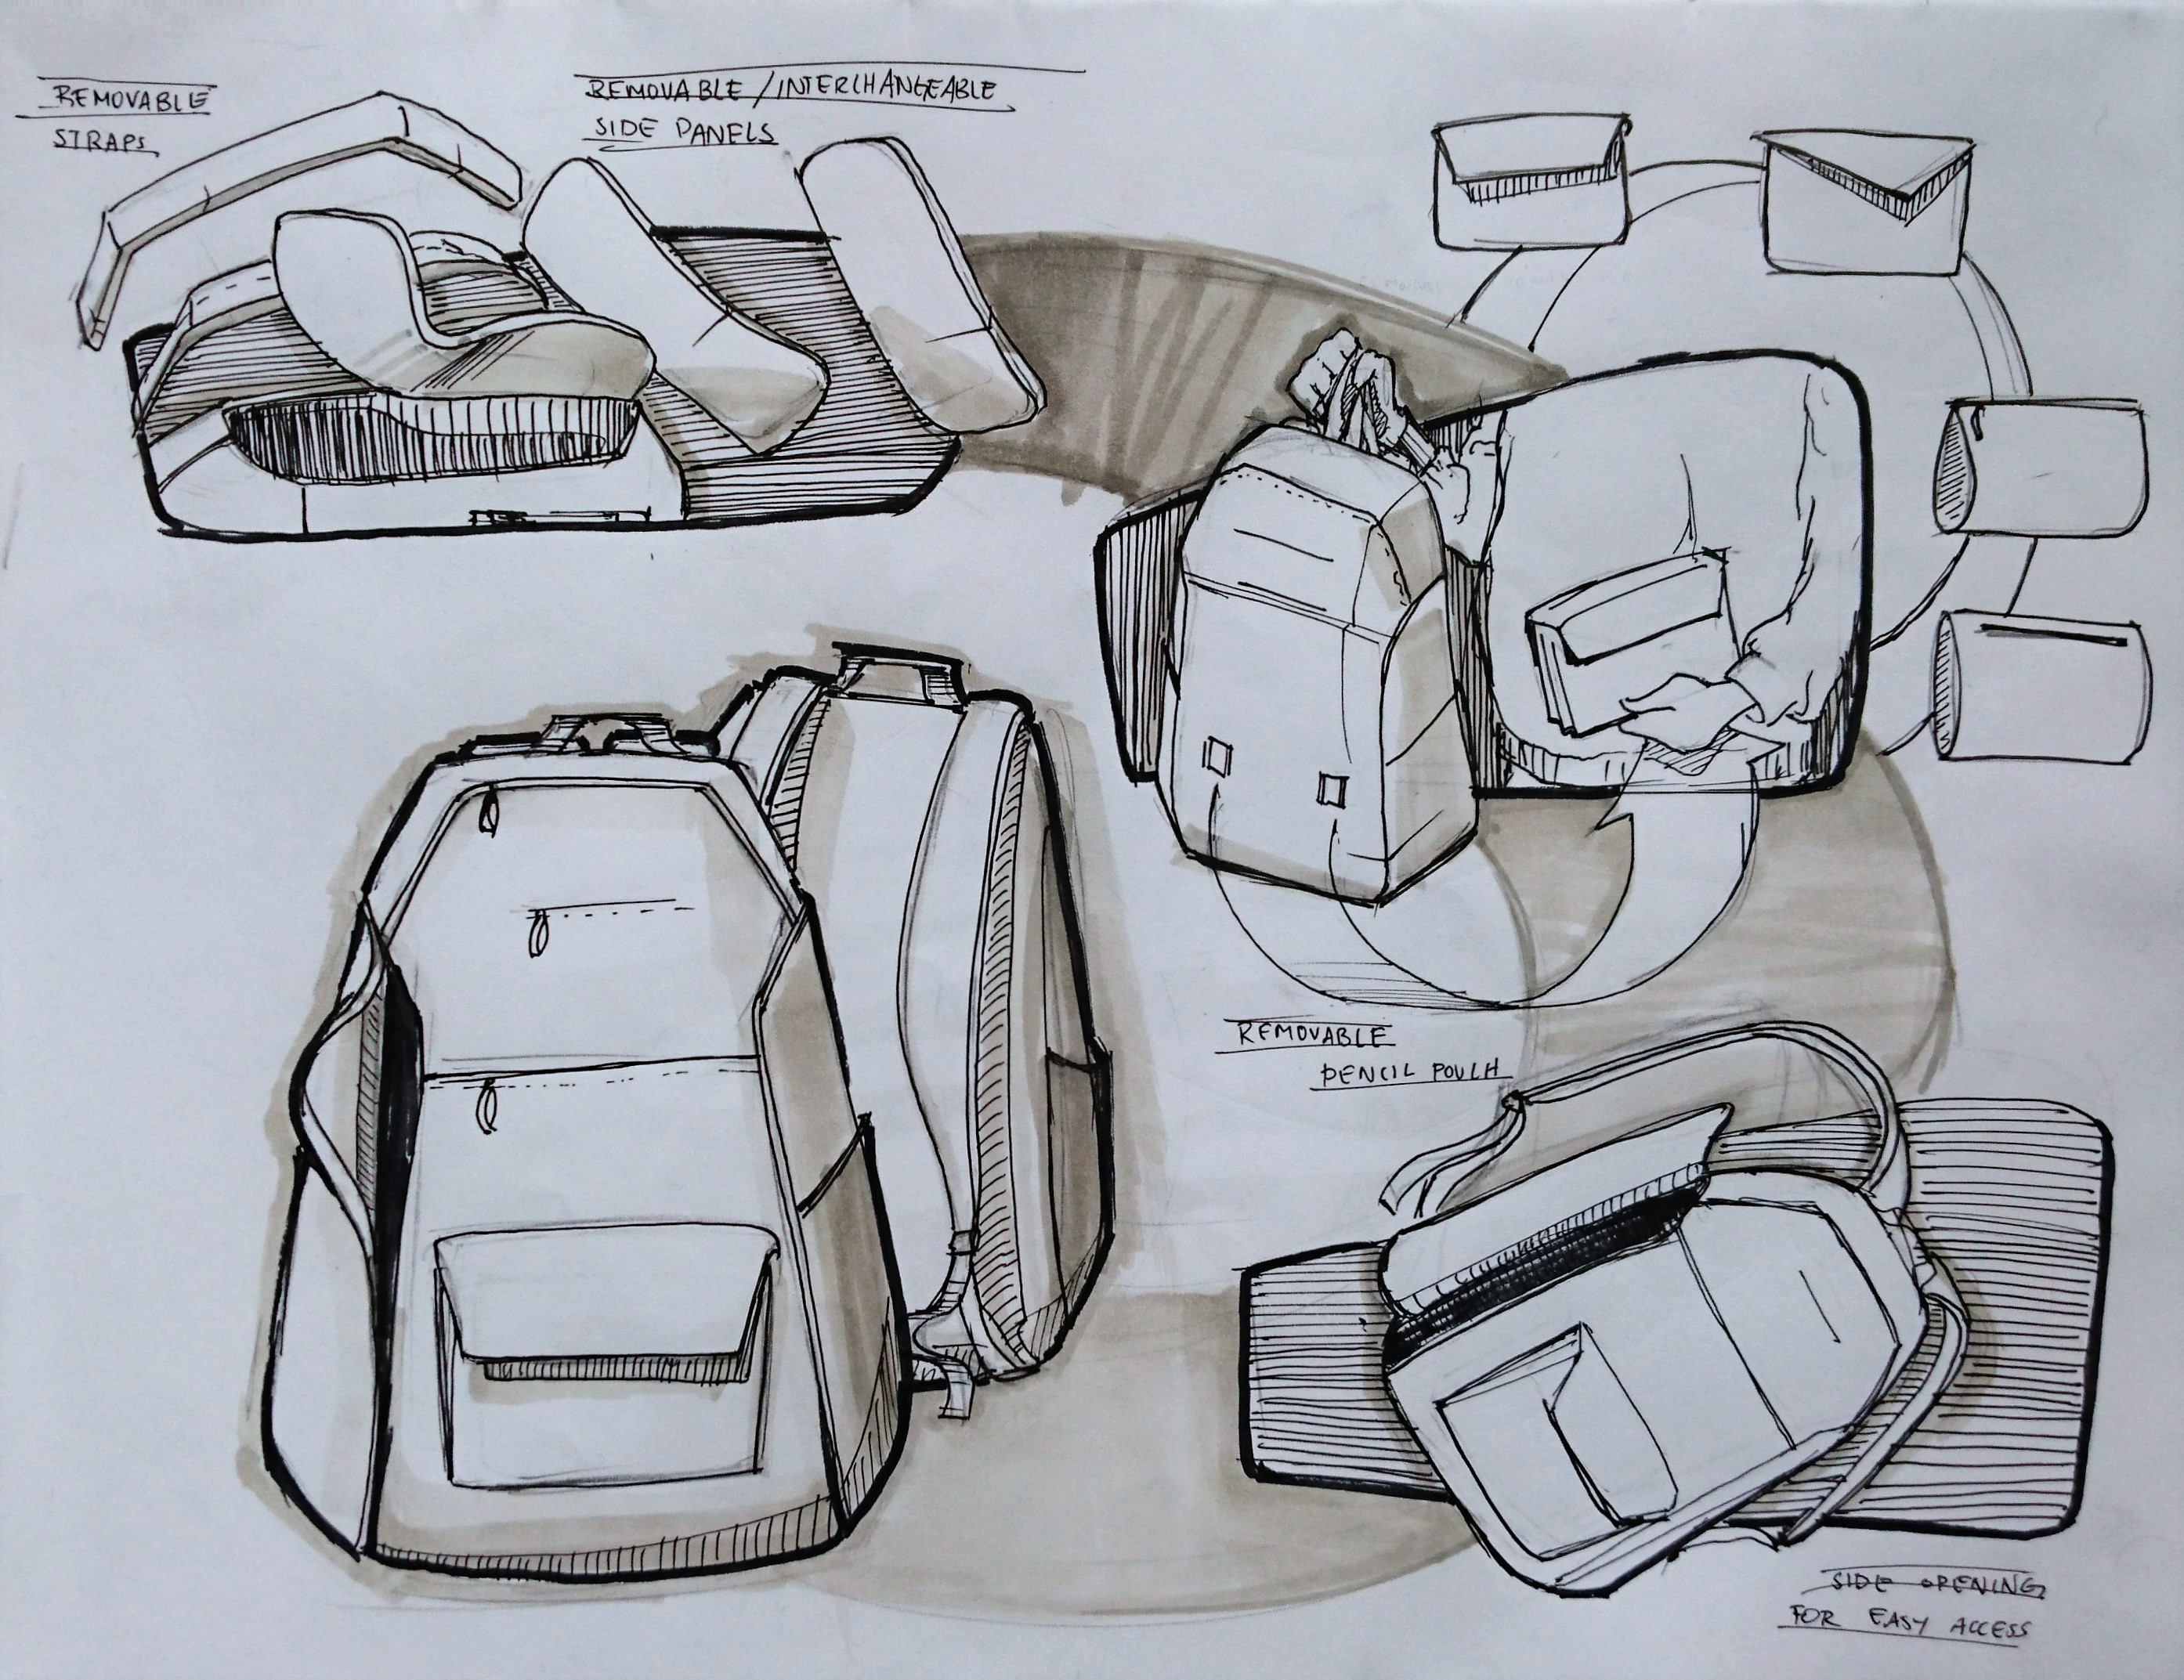 REMOVABLE
STRAPS
REMOVABLE / INTERCHANGEABLE
SIDE PANELS
REMOVABLE
PENCIL POUCH
SIDE OPENING
FOR EASY ACCESS